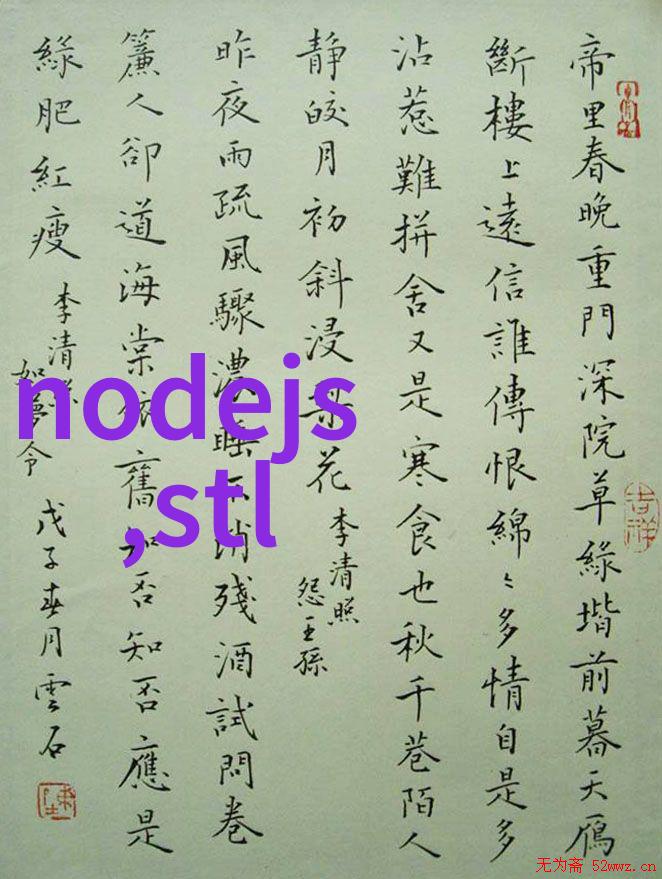 帝里春晚重門深院草緑堦前暮天鴈
斷樓上遠信誰傳恨綿〻多情自是多
沾惹難拼舍又是寒食也秋千巷陌人
静皎月初斜浸梨花
李清照
怨王孫
昨夜雨疏風驟濃睡不消殘酒試問卷
簾人卻道海棠依舊知否知否應是
緑肥紅瘦
李清照
如夢令
戊子春月雲石
吉祥
nodejs
,stl
无为斋 52wwz.cn